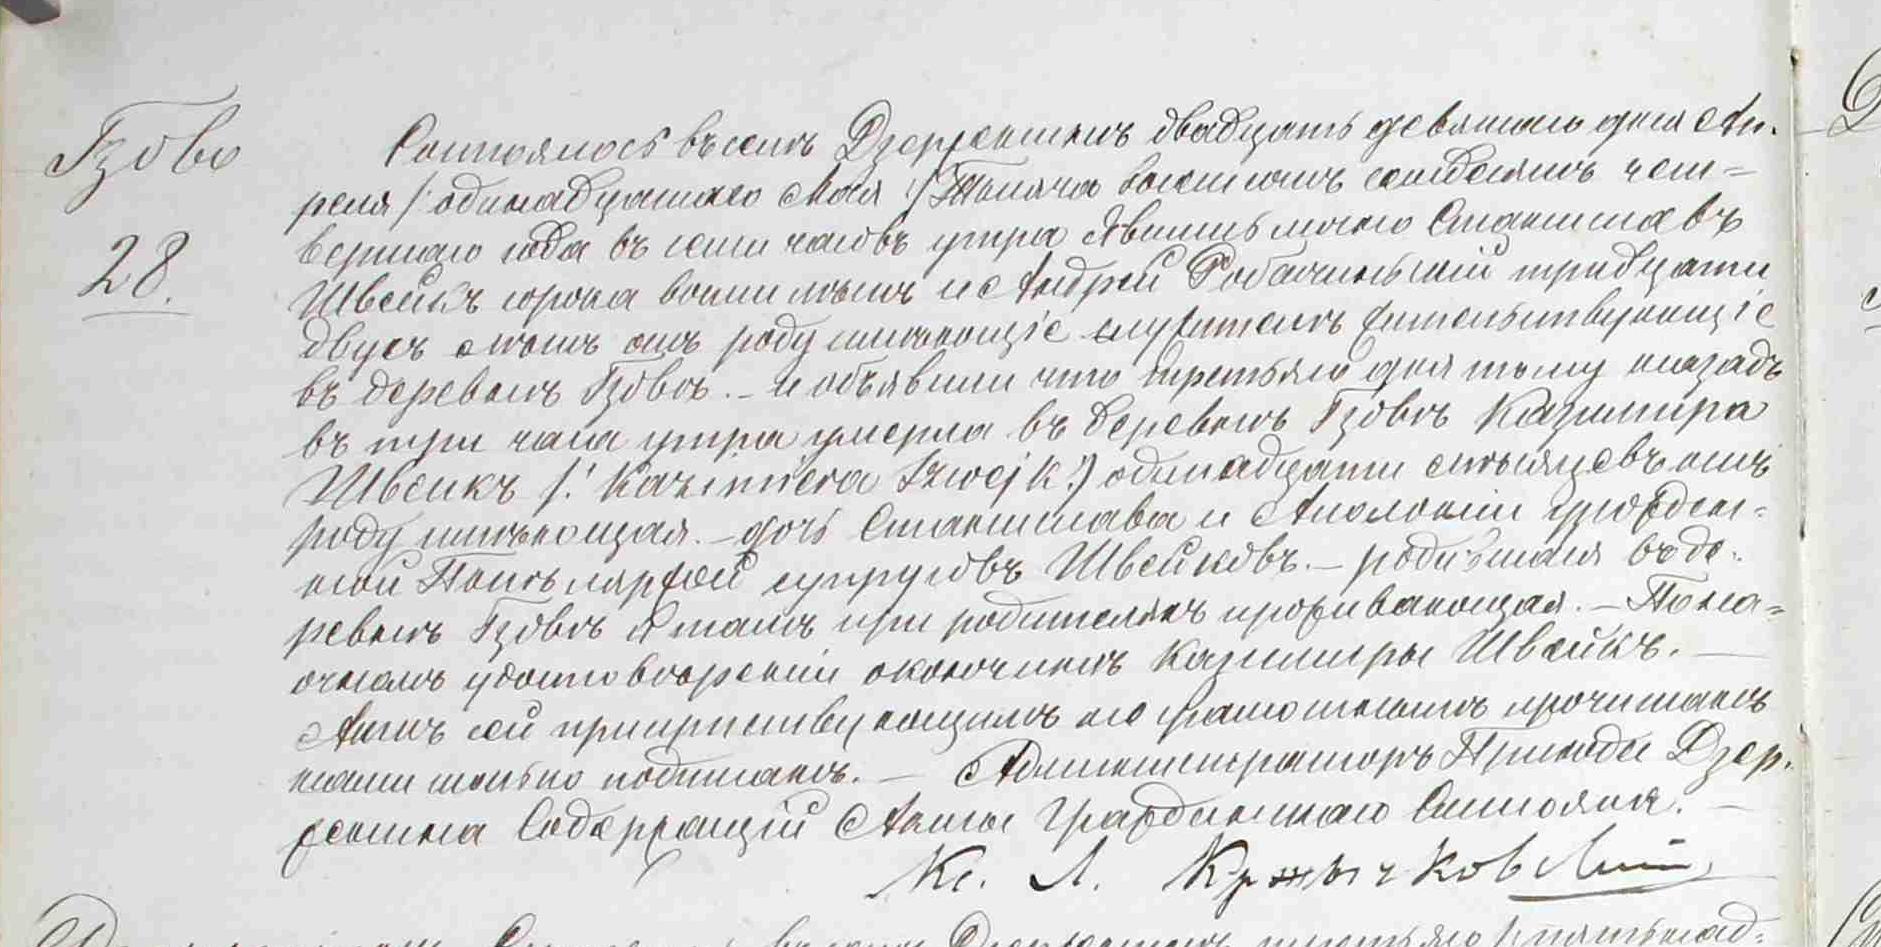 Гзово
28.
Состоялось въ селѣ Дзерженинѣ двадцать девятаго дня Ап-
реля /:одинадцатаго Мая:/ Тысяча восемсотъ семдесятъ чет-
вертаго года въ семь часовъ утра. Явились лично Станиславъ
Швейкъ сорока восми лѣтъ и Андрей Робачиньскій тридцати
двухъ лѣтъ отъ роду имѣющіе служители жительствующіе
въ деревнѣ Гзовѣ. – и объявили что третьяго дня тому назадъ
въ три часа утра умерла въ деревнѣ Гзовѣ Казимира
Швейкъ /:Kazimiera Szwejk:/ одинадцати мѣсяцевъ отъ
роду имѣющая. – дочь Станислава и Аполоніи урожден-
ной супруговъ Швейковъ. – родившаяся въ де-
ревнѣ Гзовѣ и тамъ при родителяхъ проживающая. – По на-
очномъ удостовѣреніи о кончинѣ Казимиры Швейкъ. –
Актъ сей присутствующимъ неграмотнымъ прочитанъ
нами только подписанъ. – Администраторъ Прихода Дзер-
женина Содержащій Акты Гражданскаго Состоянія. –
Кс. Л. Кржычковскій